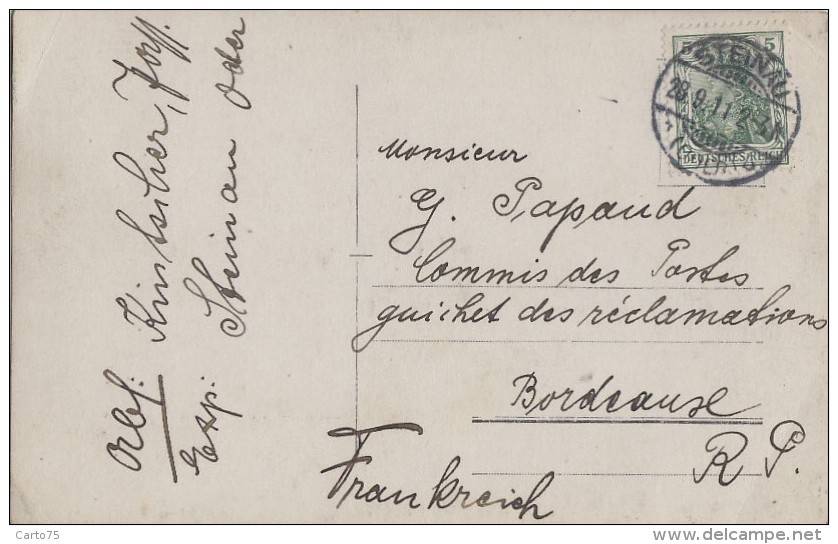 Abs: Kintscher, Jos.
Exp: Steinau Oder
5
STEINAU
29.9.11.
DEUTSCHES REICH
Monsieur
G. Papaud
Commis des Postes
guichet des réclamations
Bordeaux
R. P.
Frankreich
Carto75
www.delcampe.net